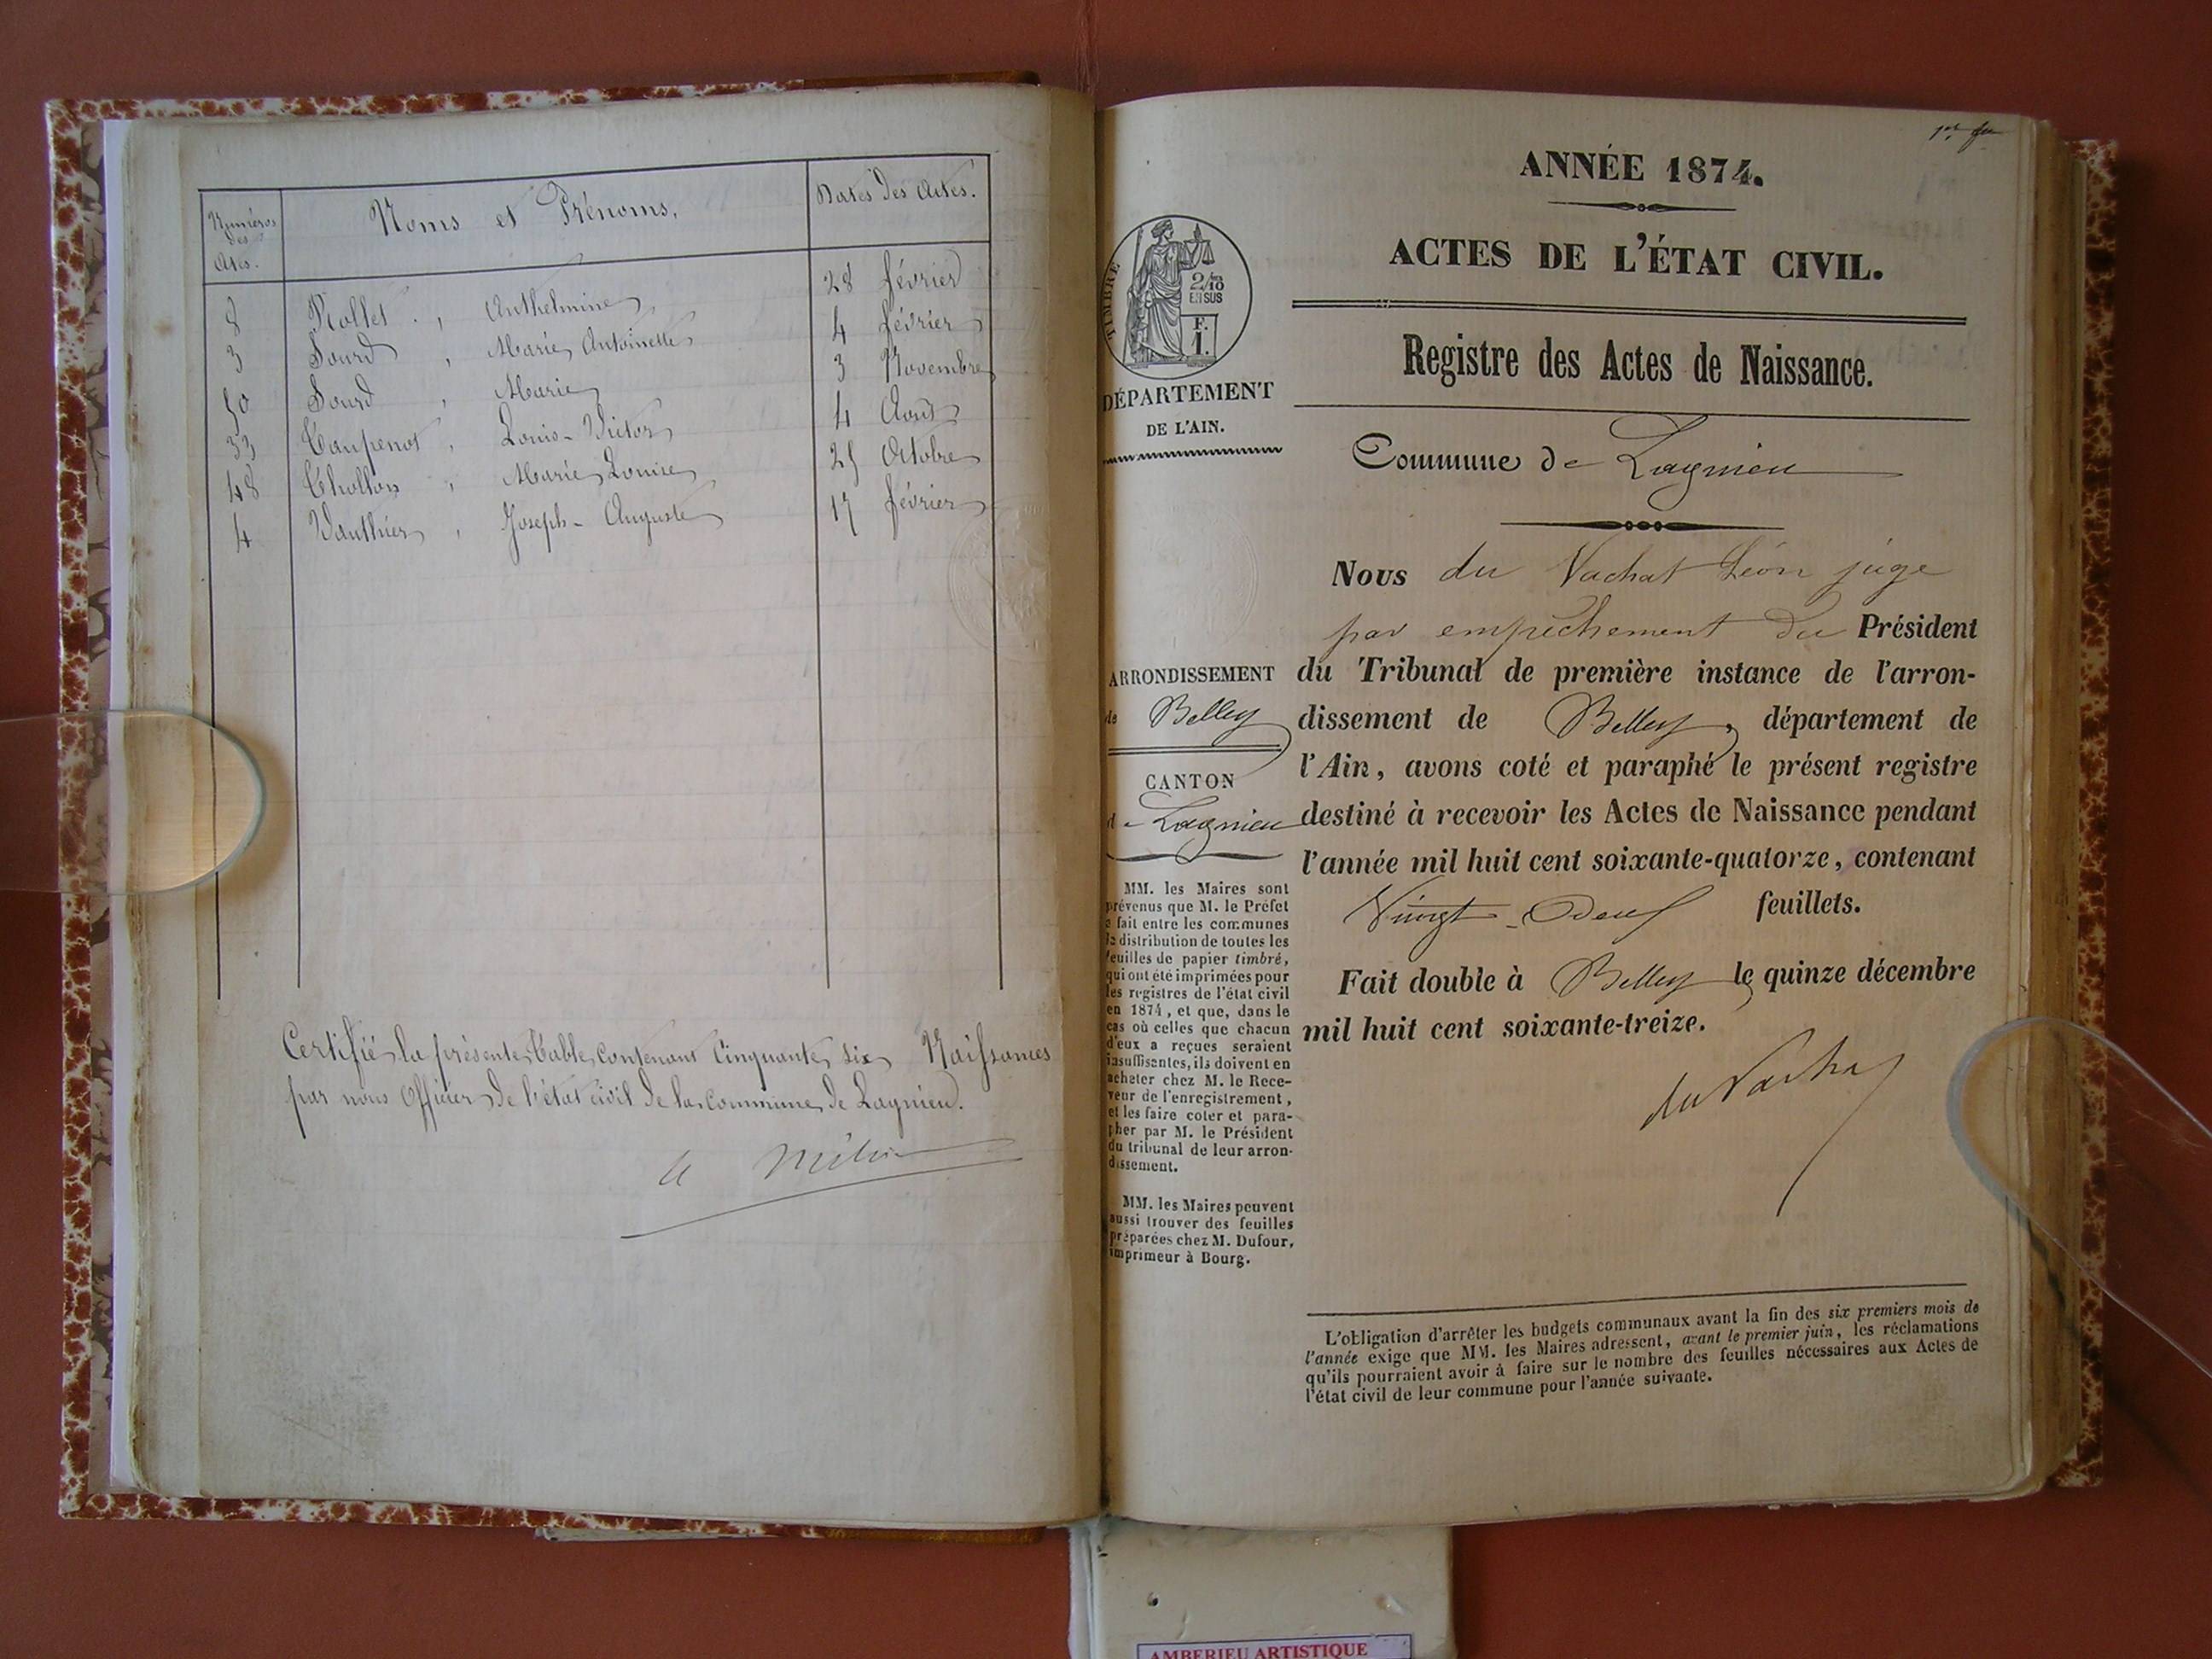 Numéros des Actes.
Noms et Prénoms.
Dates des Actes.
8 Rollet, Anthelmine 28 février
3 Sourd, Marie Antoinette 4 février
50 Sourd, Marie 3 Novembre
33 Taupenot, Louis-Victor 4 Août
48 Chollon, Marie Louise 25 Octobre
4 Vauthier, Joseph-Auguste 17 février
Certifié la présente Table contenant Cinquante six Naissances
par nous Officier de l'état civil de la commune de Lagnieu.
ANNÉE 1874.
ACTES DE L'ÉTAT CIVIL.
Registre des Actes de Naissance.
TIMBRE
2/10
EN SUS
F.
1.
DÉPARTEMENT
DE L'AIN.
ARRONDISSEMENT
de Belley
CANTON
de Lagnieu
MM. les Maires sont
prévenus que M. le Préfet
a fait entre les communes
la distribution de toutes les
feuilles de papier timbré,
qui ont été imprimées pour
les registres de l'état civil
en 1874, et que, dans le
cas où celles que chacun
d'eux a reçues seraient
insuffisantes, ils doivent en
acheter chez M. le Rece-
veur de l'enregistrement,
et les faire coter et para-
pher par M. le Président
du tribunal de leur arron-
dissement.
MM. les Maires peuvent
aussi trouver des feuilles
préparées chez M. Dufour,
imprimeur à Bourg.
Commune de Lagnieu
Nous du Vachat Léon juge
par empêchement du Président
du Tribunal de première instance de l'arron-
dissement de Belley, département de
l'Ain, avons coté et paraphé le présent registre
destiné à recevoir les Actes de Naissance pendant
l'année mil huit cent soixante-quatorze, contenant
Vingt-Deux feuillets.
Fait double à Belley le quinze décembre
mil huit cent soixante-treize.
du Vachat
L'obligation d'arrêter les budgets communaux avant la fin des six premiers mois de
l'année exige que MM. les Maires adressent, avant le premier juin, les réclamations
qu'ils pourraient avoir à faire sur le nombre des feuilles nécessaires aux Actes de
l'état civil de leur commune pour l'année suivante.
AMBERIEU ARTISTIQUE